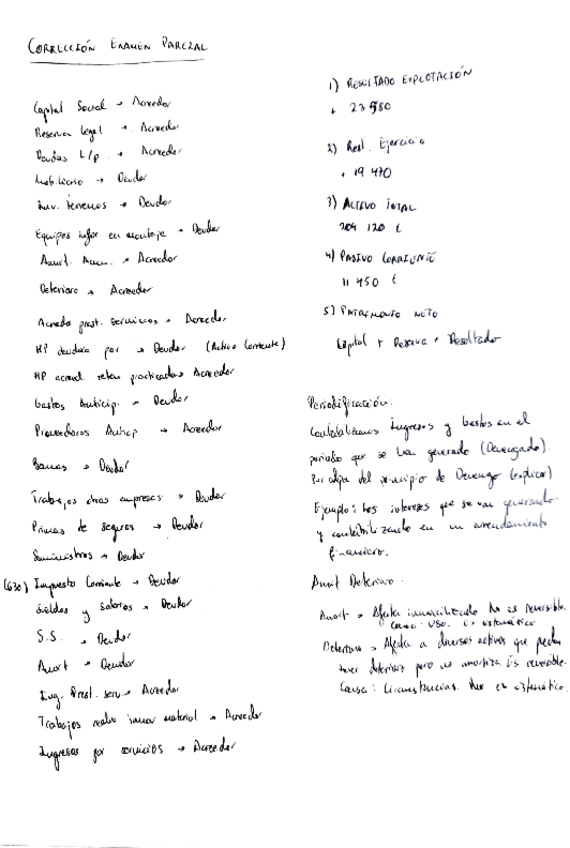 CORRECCIÓN EXAMEN PARCIAL
Capital Social → Acreedor
Reserva legal → Acreedor
Deudas L/p → Acreedor
Mobiliario → Deudor
Inv. terrenos → Deudor
Equipos infor. en montaje → Deudor
Amort. Acum. → Acreedor
Deterioro → Acreedor
Acreedo prest. servicios → Acreedor
HP deudora por → Deudor (Activo Corriente)
HP acreed. reten practicadas Acreedor
Gastos Anticip. → Deudor
Proveedores → Acreedor
Bancos → Deudor
Trabajos otras empresas → Deudor
Primas de seguros → Deudor
Suministros → Deudor
(630) Impuesto Corriente → Deudor
Sueldos y salarios → Deudor
S.S. → Deudor
Amort → Deudor
Ing. Prest. serv → Acreedor
Trabajos realiz inmov material → Acreedor
Ingresos por servicios → Acreedor
1) RESULTADO EXPLOTACIÓN
+ 23 580
2) Resl. Ejercicio
+ 19 470
3) ACTIVO TOTAL
204 120 €
4) PASIVO CORRIENTE
11 450 €
5) PATRIMONIO NETO
Capital + Reserva + Resultado
Periodificación.
Contabilizamos Ingresos y Gastos en el
periodo que se han generado (Devengado).
Por culpa del principio de Devengo (explicar)
Ejemplo: Los intereses que se van generando
y contabilizando en un arrendamiento
financiero.
Amort Deterioro.
Amort → Afecta inmovilizado No es reversible.
Causa: USO. Es sistemático
Deterioro → Afecta a diversos activos que puedan
tener deterioro pero no amortiza Es reversible.
Causa: Circunstancias. No es sistemático.